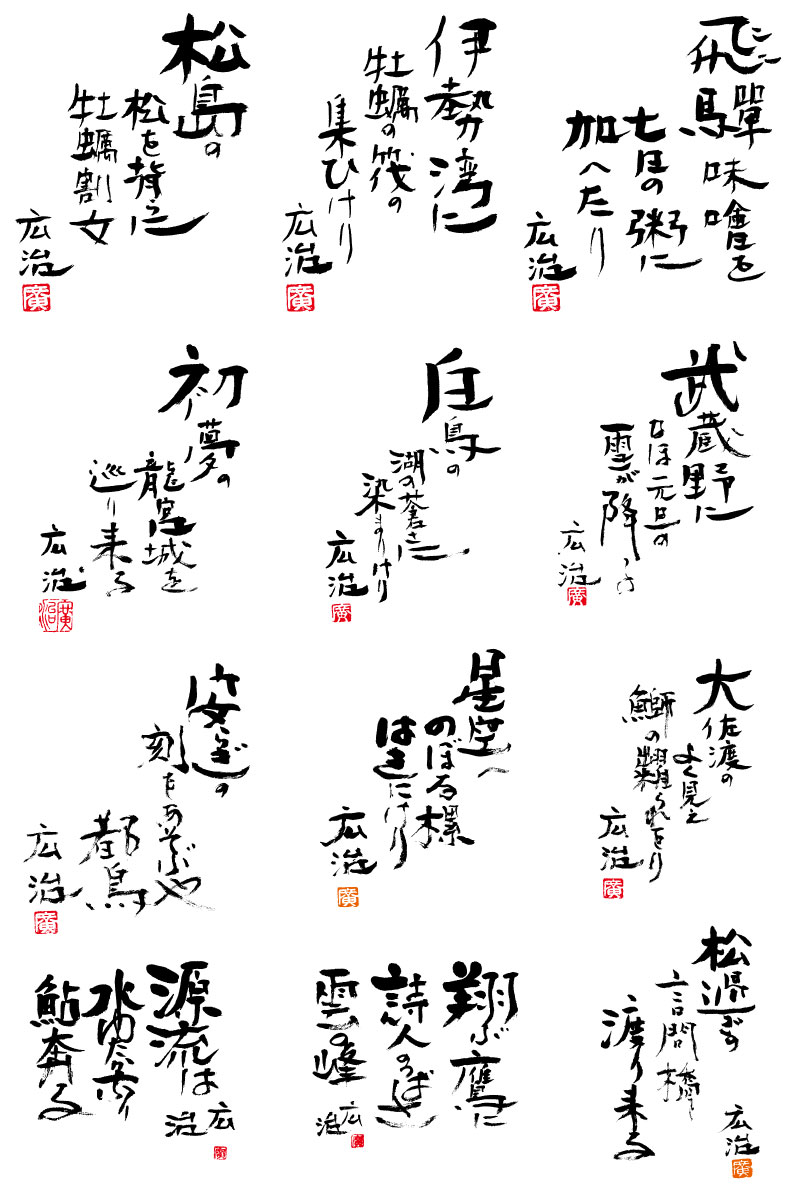 飛驒味噌を
七日の粥に
加へたり
広治
廣
伊勢湾に
牡蠣の筏の
集ひけり
広治
廣
松島の
松を背に
牡蠣割女
広治
廣
武蔵野に
なほ元旦の
雪が降る
広治
廣
白鳥の
湖の蒼さに
染まりけり
広治
廣
初夢の
龍宮城を
巡り来る
広治
廣治
大佐渡の
よく見え
鰤の糶られをり
広治
廣
星空へ
のぼる樏
はきにけり
広治
廣
安らぎの
刻をあそぶや
都鳥
広治
廣
松過ぎの
言問橋を
渡り来る
広治
廣
翔ぶ鷹に
詩人のつばさ
雲の峰
広治
源流は
水ゆたかなり
鮎奔る
広治